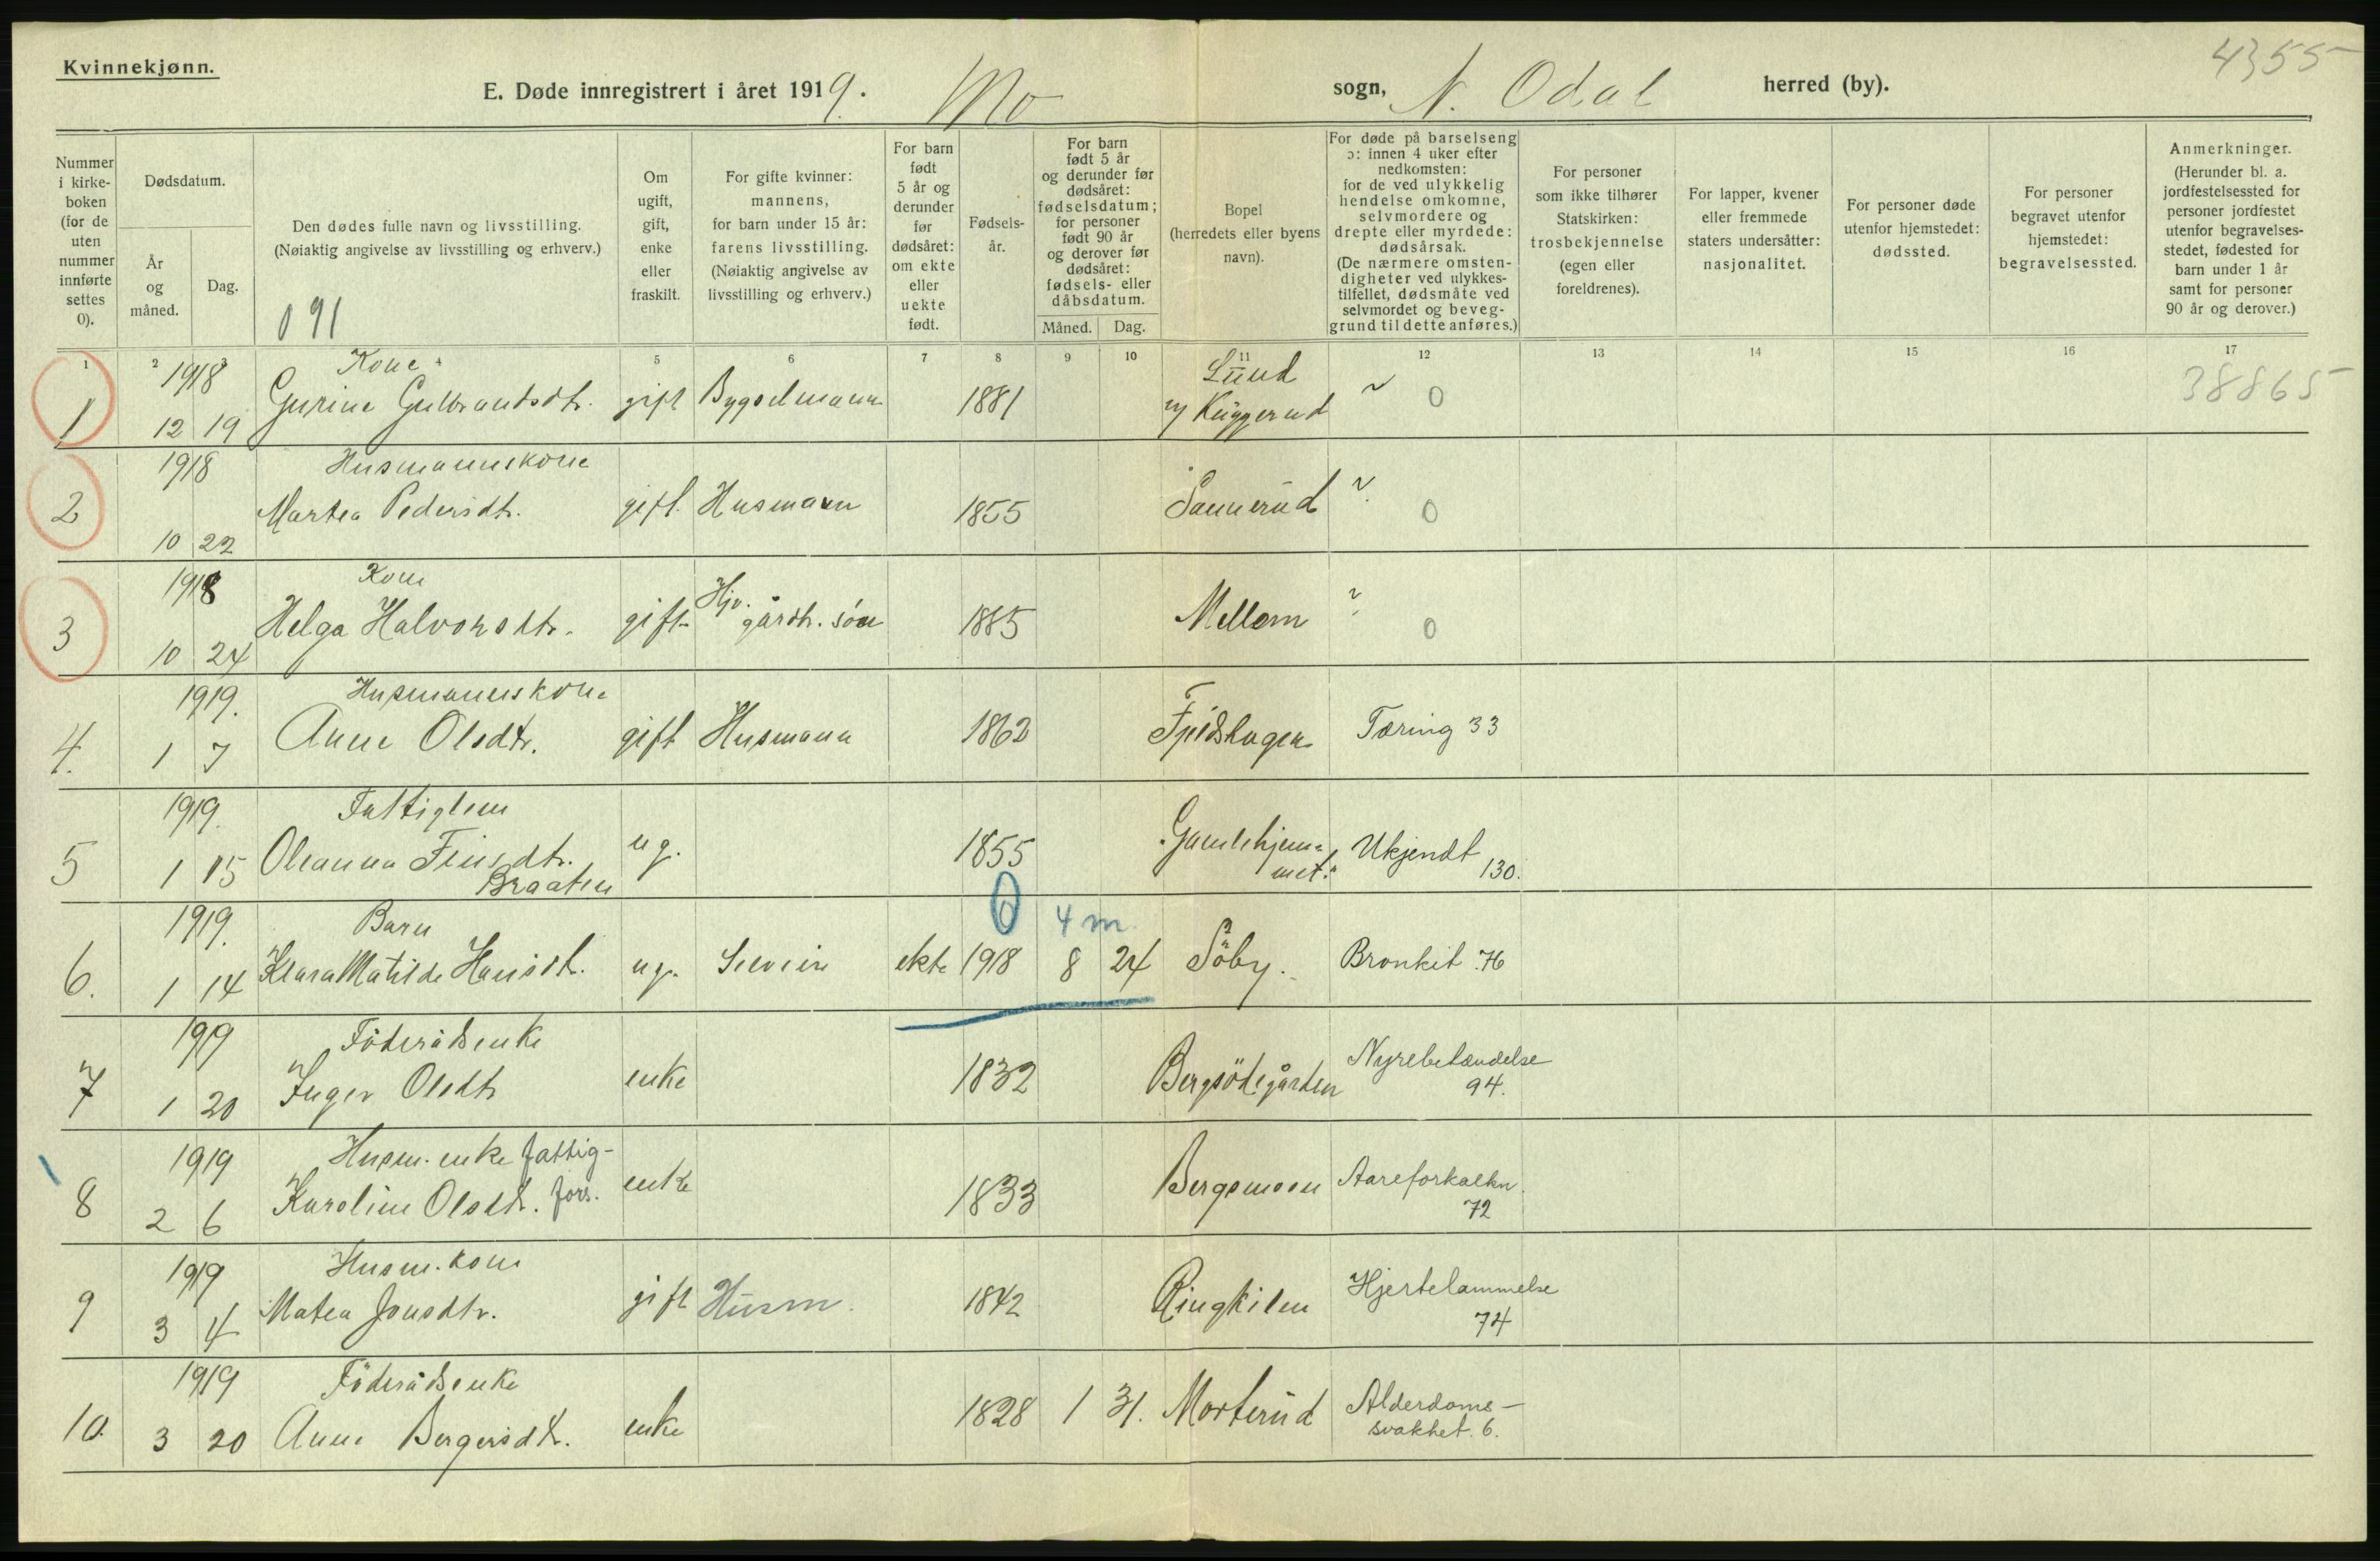 Kvinnekjønn.
4355
E. Døde innregistrert i året 1919. Mo sogn, N. Odal herred (by).
Nummer i kirke-boken (for de uten nummer innførte settes 0).
Dødsdatum.
År og måned.
Dag.
Den dødes fulle navn og livsstilling.
(Nøiaktig angivelse av livsstilling og erhverv.)
091
Om ugift, gift, enke eller fraskilt.
For gifte kvinner: mannens, for barn under 15 år: farens livsstilling. (Nøiaktig angivelse av livsstilling og erhverv.)
For barn født 5 år og derunder før dødsåret: om ekte eller uekte født.
Fødsels-år.
For barn født 5 år og derunder før dødsåret: fødselsdatum; for personer født 90 år og derover før dødsåret: fødsels- eller dåbsdatum.
Måned. Dag.
Bopel (herredets eller byens navn).
For døde på barselseng ɔ: innen 4 uker efter nedkomsten: for de ved ulykkelig hendelse omkomne, selvmordere og drepte eller myrdede: dødsårsak. (De nærmere omsten-digheter ved ulykkes-tilfellet, dødsmåte ved selvmordet og beveg-grund til dette anføres.)
For personer som ikke tilhører Statskirken: trosbekjennelse (egen eller foreldrenes).
For lapper, kvener eller fremmede staters undersåtter: nasjonalitet.
For personer døde utenfor hjemstedet: dødssted.
For personer begravet utenfor hjemstedet: begravelsessted.
Anmerkninger. (Herunder bl. a. jordfestelsessted for personer jordfestet utenfor begravelses-stedet, fødested for barn under 1 år samt for personer 90 år og derover.)
1 2 3 4 5 6 7 8 9 10 11 12 13 14 15 16 17
1918 Kone Lund 38865
1 12 19 Gurine Gulbrandsdtr. gift Bygselmann 1881 Kuggerud 0
1918 Husmannskone
2 10 22 Martea Pedersdtr. gift. Husmann 1855 Sannerud 0
1918 Kone
3 10 24 Helga Halvorsdtr. gift Hjv. gårdbr. søn 1885 Mellem 0
1919. Husmannskone
4. 1 7 Anne Olsdtr. gift Husmann 1862 Fjeldshagen Tæring 33
1919. Fattiglem
5 1 15 Oleanna Finsdtr. ug. 1855 Gamlehjem-met. Ukjendt 130.
Braaten
1919. Barn 0 4 m
6. 1 14 Klara Matilde Hansdt. ug. ekte 1918 8 24 Söby. Bronkit 76
1919 Föderådsenke
7 1 20 Inger Olsdtr enke 1832 Bergsödegården Nyrebetændelse
94.
1919 Husm. enke fattig-
8 2 6 Karoline Olsdtr. fors. enke 1833 Bergsmoen Aareforkalkn.
72
1919 Husm. kone
9 3 4 Matea Jonsdtr. gift Husm. 1842 Ringkilen Hjertelammelse
74
1919 Föderådsenke
10. 3 20 Anne Bergersdtr. enke 1828 1 31. Morterud Alderdoms-
svakhet. 6.